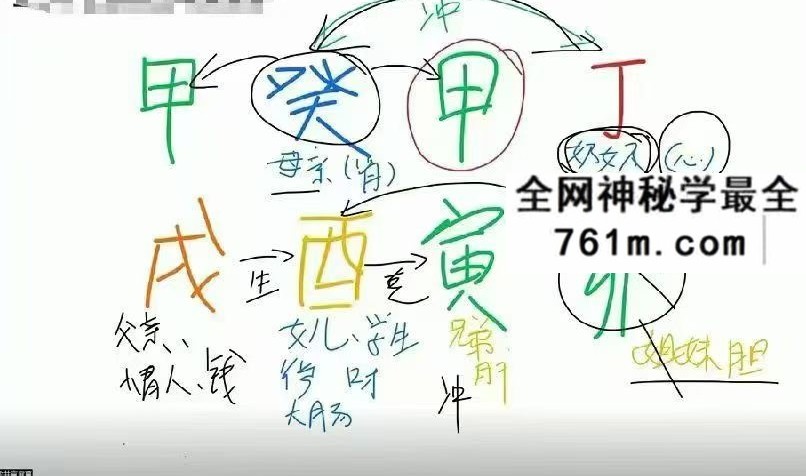 冲
甲 癸 甲 丁
母亲(肾) (心)
全网神秘学最全
761m.com
戌 生 酉 克 寅 卯
父亲、 女儿、学生 兄弟 姐妹 胆
情人、钱
大肠 冲